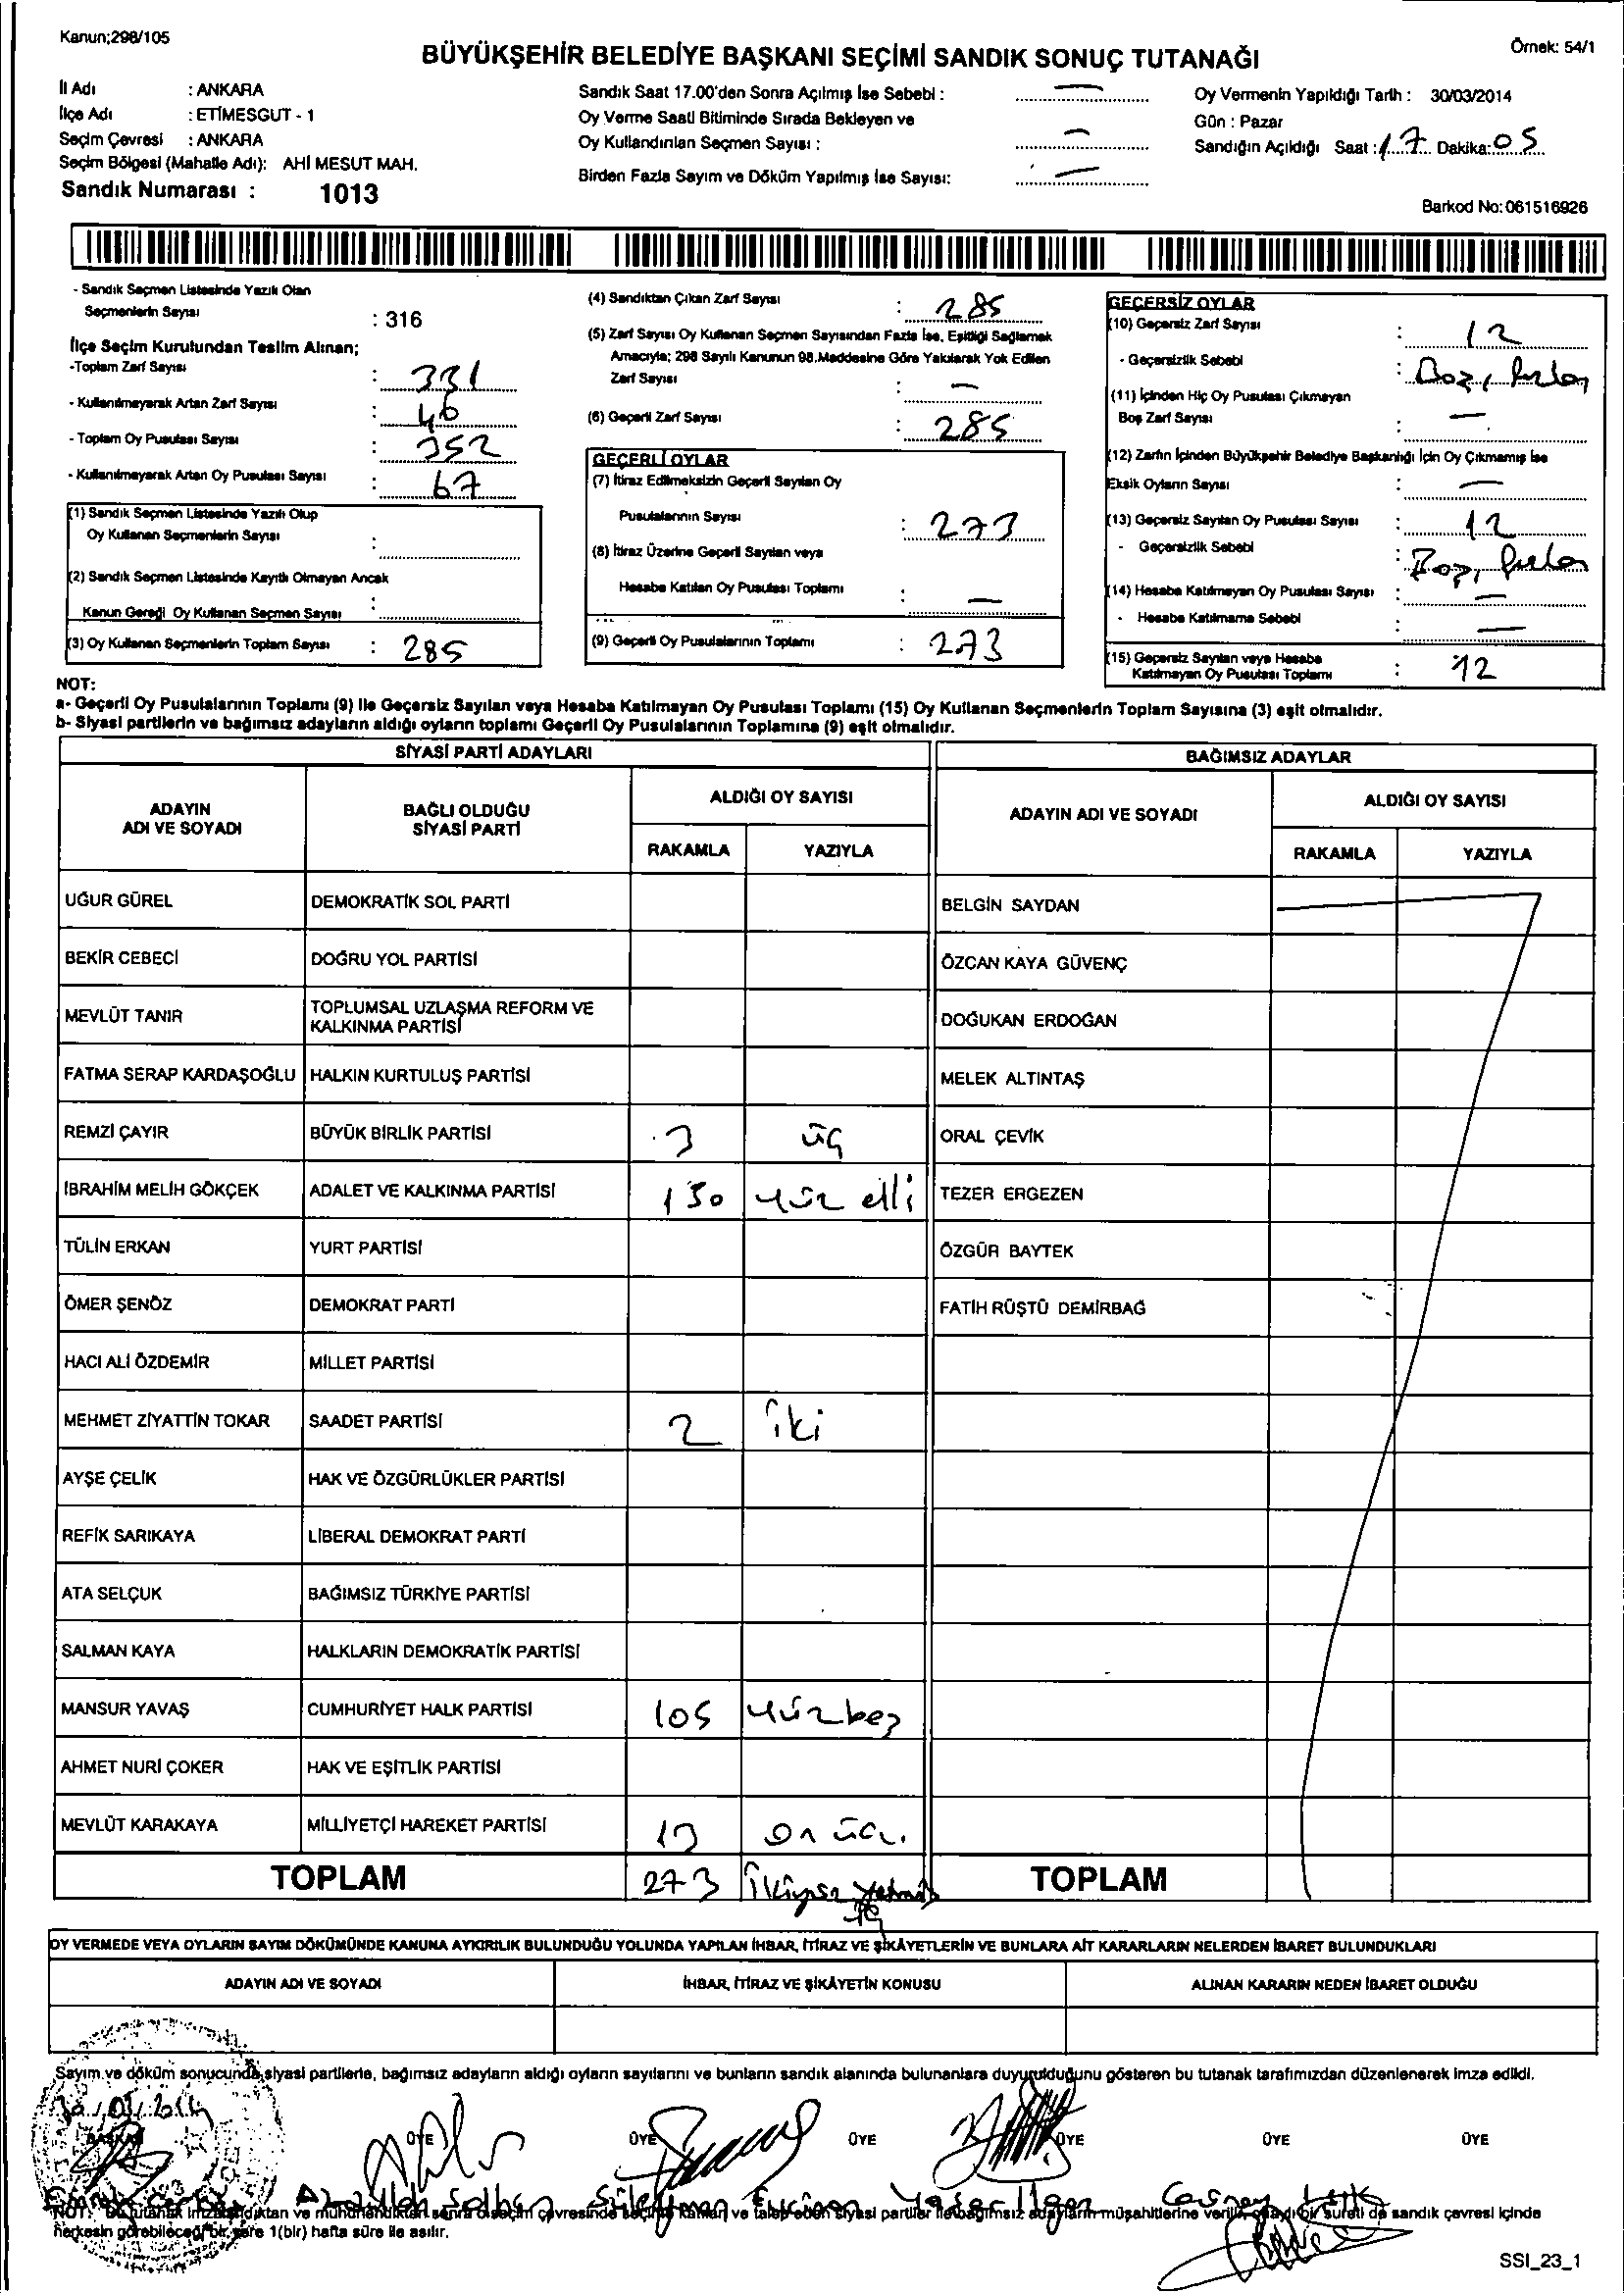 Kanun;298/105
Örnek: 54/1
BÜYÜKŞEHİR BELEDİYE BAŞKANI SEÇİMİ SANDIK SONUÇ TUTANAĞI
İl Adı : ANKARA
İlçe Adı : ETİMESGUT - 1
Seçim Çevresi : ANKARA
Seçim Bölgesi (Mahalle Adı): AHİ MESUT MAH.
Sandık Numarası : 1013
Sandık Saat 17.00'den Sonra Açılmış İse Sebebi : —
Oy Verme Saati Bitiminde Sırada Bekleyen ve
Oy Kullandırılan Seçmen Sayısı : —
Birden Fazla Sayım ve Döküm Yapılmış İse Sayısı: —
Oy Vermenin Yapıldığı Tarih : 30/03/2014
Gün : Pazar
Sandığın Açıldığı Saat : 17 Dakika: 05
Barkod No: 061516926
- Sandık Seçmen Listesinde Yazılı Olan
Seçmenlerin Sayısı : 316
İlçe Seçim Kurulundan Teslim Alınan;
-Toplam Zarf Sayısı : 331
- Kullanılmayarak Artan Zarf Sayısı : 46
- Toplam Oy Pusulası Sayısı : 352
- Kullanılmayarak Artan Oy Pusulası Sayısı : 67
(1) Sandık Seçmen Listesinde Yazılı Olup
Oy Kullanan Seçmenlerin Sayısı :
(2) Sandık Seçmen Listesinde Kayıtlı Olmayan Ancak
Kanun Gereği Oy Kullanan Seçmen Sayısı :
(3) Oy Kullanan Seçmenlerin Toplam Sayısı : 285
(4) Sandıktan Çıkan Zarf Sayısı : 285
(5) Zarf Sayısı Oy Kullanan Seçmen Sayısından Fazla İse, Eşitliği Sağlamak
Amacıyla; 298 Sayılı Kanunun 98.Maddesine Göre Yakılarak Yok Edilen
Zarf Sayısı : —
(6) Geçerli Zarf Sayısı : 285
GEÇERLİ OYLAR
(7) İtiraz Edilmeksizin Geçerli Sayılan Oy
Pusulalarının Sayısı : 273
(8) İtiraz Üzerine Geçerli Sayılan veya
Hesaba Katılan Oy Pusulası Toplamı : —
(9) Geçerli Oy Pusulalarının Toplamı : 273
GEÇERSİZ OYLAR
(10) Geçersiz Zarf Sayısı : 12
- Geçersizlik Sebebi :
(11) İçinden Hiç Oy Pusulası Çıkmayan
Boş Zarf Sayısı : —
(12) Zarfın İçinden Büyükşehir Belediye Başkanlığı İçin Oy Çıkmamış İse
Eksik Oyların Sayısı : —
(13) Geçersiz Sayılan Oy Pusulası Sayısı : 12
- Geçersizlik Sebebi :
(14) Hesaba Katılmayan Oy Pusulası Sayısı : —
- Hesaba Katılmama Sebebi : —
(15) Geçersiz Sayılan veya Hesaba
Katılmayan Oy Pusulası Toplamı : 12
NOT:
a- Geçerli Oy Pusulalarının Toplamı (9) ile Geçersiz Sayılan veya Hesaba Katılmayan Oy Pusulası Toplamı (15) Oy Kullanan Seçmenlerin Toplam Sayısına (3) eşit olmalıdır.
b- Siyasi partilerin ve bağımsız adayların aldığı oyların toplamı Geçerli Oy Pusulalarının Toplamına (9) eşit olmalıdır.
SİYASİ PARTİ ADAYLARI
BAĞIMSIZ ADAYLAR
ADAYIN ADI VE SOYADI
BAĞLI OLDUĞU SİYASİ PARTİ
ALDIĞI OY SAYISI
RAKAMLA YAZIYLA
ADAYIN ADI VE SOYADI
ALDIĞI OY SAYISI
RAKAMLA YAZIYLA
UĞUR GÜREL DEMOKRATİK SOL PARTİ BELGİN SAYDAN
BEKİR CEBECİ DOĞRU YOL PARTİSİ ÖZCAN KAYA GÜVENÇ
MEVLÜT TANIR TOPLUMSAL UZLAŞMA REFORM VE KALKINMA PARTİSİ DOĞUKAN ERDOĞAN
FATMA SERAP KARDAŞOĞLU HALKIN KURTULUŞ PARTİSİ MELEK ALTINTAŞ
REMZİ ÇAYIR BÜYÜK BİRLİK PARTİSİ 3 üç ORAL ÇEVİK
İBRAHİM MELİH GÖKÇEK ADALET VE KALKINMA PARTİSİ 150 yüz elli TEZER ERGEZEN
TÜLİN ERKAN YURT PARTİSİ ÖZGÜR BAYTEK
ÖMER ŞENÖZ DEMOKRAT PARTİ FATİH RÜŞTÜ DEMİRBAĞ
HACI ALİ ÖZDEMİR MİLLET PARTİSİ
MEHMET ZİYATTİN TOKAR SAADET PARTİSİ 2 iki
AYŞE ÇELİK HAK VE ÖZGÜRLÜKLER PARTİSİ
REFİK SARIKAYA LİBERAL DEMOKRAT PARTİ
ATA SELÇUK BAĞIMSIZ TÜRKİYE PARTİSİ
SALMAN KAYA HALKLARIN DEMOKRATİK PARTİSİ
MANSUR YAVAŞ CUMHURİYET HALK PARTİSİ 105 yüzbeş
AHMET NURİ ÇOKER HAK VE EŞİTLİK PARTİSİ
MEVLÜT KARAKAYA MİLLİYETÇİ HAREKET PARTİSİ 13 on üç.
TOPLAM 273 ikiyüz yetmiş üç TOPLAM
OY VERMEDE VEYA OYLARIN SAYIM DÖKÜMÜNDE KANUNA AYKIRILIK BULUNDUĞU YOLUNDA YAPILAN İHBAR, İTİRAZ VE ŞİKÂYETLERİN VE BUNLARA AİT KARARLARIN NELERDEN İBARET BULUNDUKLARI
ADAYIN ADI VE SOYADI İHBAR, İTİRAZ VE ŞİKÂYETİN KONUSU ALINAN KARARIN NEDEN İBARET OLDUĞU
Sayım ve döküm sonucunda siyasi partilerle, bağımsız adayların aldığı oyların sayılarını ve bunların sandık alanında bulunanlara duyurulduğunu gösteren bu tutanak tarafımızdan düzenlenerek imza edildi.
BAŞKAN ÜYE ÜYE ÜYE ÜYE ÜYE ÜYE
Süleyman Yaşar
NOT: Bu tutanak imzalandıktan ve mühürlendikten sonra o seçim çevresinde seçime katılan ve talep eden siyasi partiler ile bağımsız adayların müşahitlerine verilir, onaylı bir sureti de sandık çevresi içinde
herkesin görebileceği bir yere 1(bir) hafta süre ile asılır.
SSI_23_1